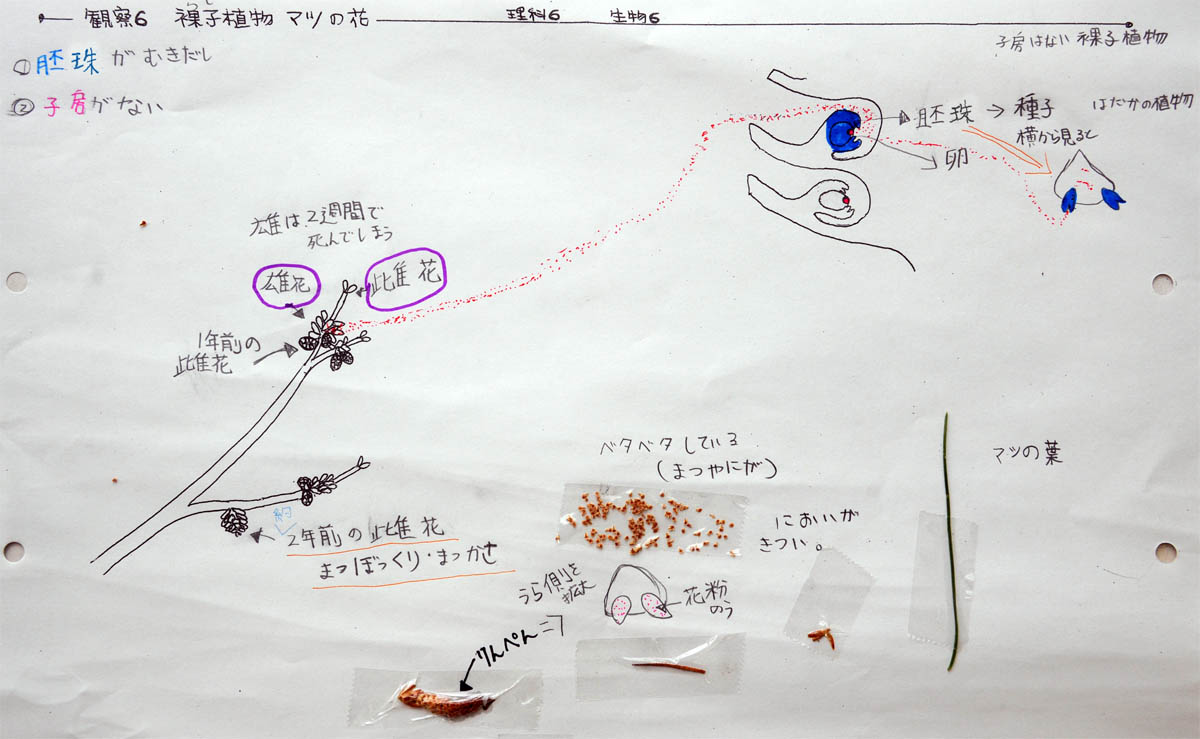 観察6 裸子植物 マツの花
理科6 生物6
子房はない 裸子植物
①胚珠がむきだし
②子房がない
胚珠→種子
はだかの植物
横から見ると
卵
雄は2週間で
死んでしまう
雄花
雌花
1年前の
雌花
2年前の雌花
まつぼっくり・まつかさ
ベタベタしている
(まつやにが)
マツの葉
においが
きつい。
うら側を
拡大
花粉
のう
りんぺん